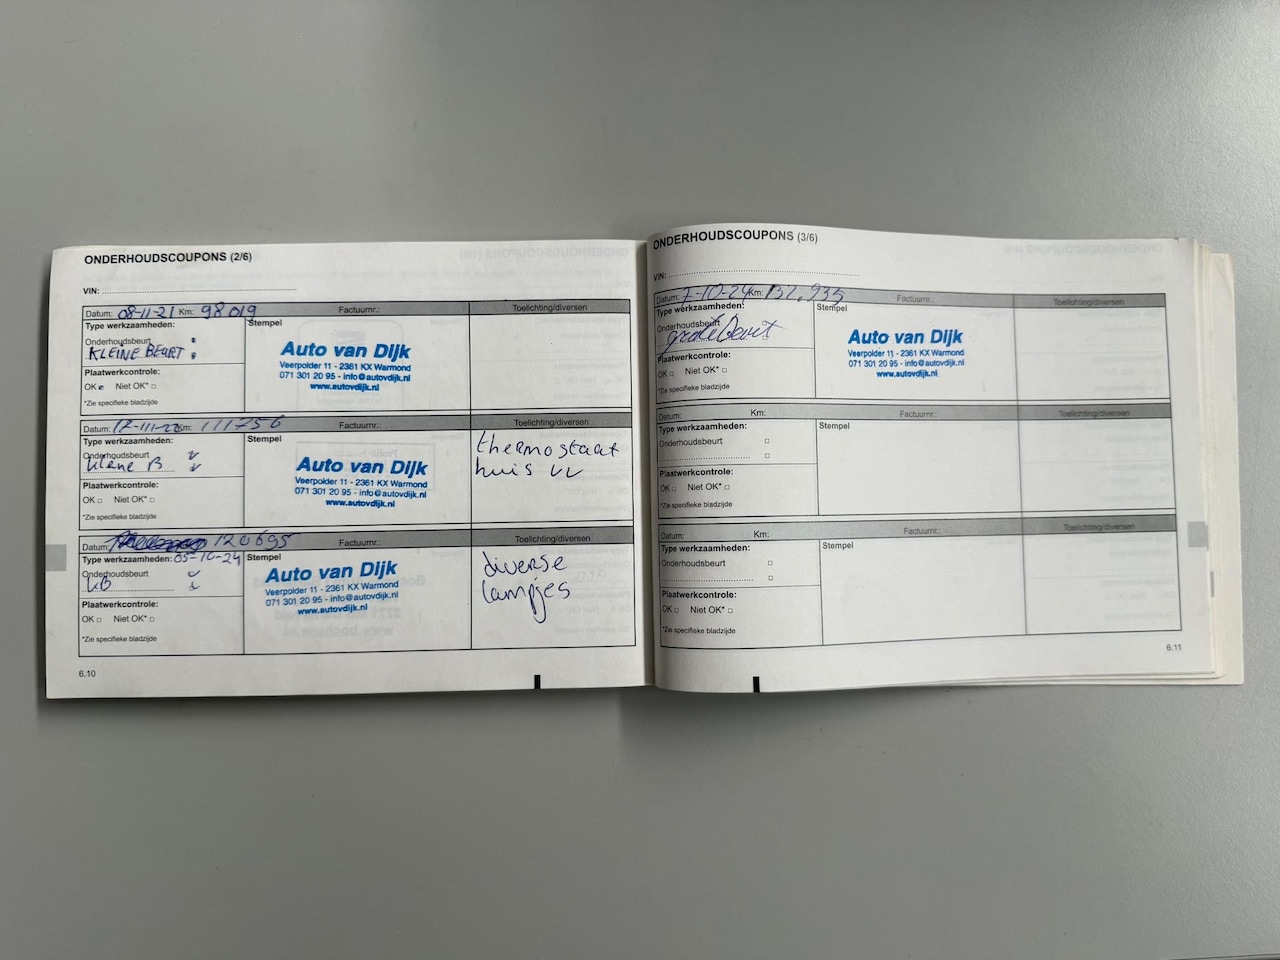 ONDERHOUDSCOUPONS (2/6)
VIN:
Datum: 08-11-21 Km: 98019 Factuurnr.: Toelichting/diversen
Type werkzaamheden: Stempel
Onderhoudsbeurt
KLEINE BEURT
Auto van Dijk
Veerpolder 11 - 2361 KX Warmond
071 301 20 95 - info@autovdijk.nl
www.autovdijk.nl
Plaatwerkcontrole:
OK Niet OK*
*Zie specifieke bladzijde
Datum: Km: 111756 Factuurnr.: Toelichting/diversen
Type werkzaamheden: Stempel
Onderhoudsbeurt
kleine B
Auto van Dijk
Veerpolder 11 - 2361 KX Warmond
071 301 20 95 - info@autovdijk.nl
www.autovdijk.nl
thermostaat
huis vv
Plaatwerkcontrole:
OK Niet OK*
*Zie specifieke bladzijde
Datum: 120695 Factuurnr.: Toelichting/diversen
Type werkzaamheden: 05-10-24 Stempel
Onderhoudsbeurt
KB
Auto van Dijk
Veerpolder 11 - 2361 KX Warmond
071 301 20 95 - info@autovdijk.nl
www.autovdijk.nl
diverse
lampjes
Plaatwerkcontrole:
OK Niet OK*
*Zie specifieke bladzijde
6.10
ONDERHOUDSCOUPONS (3/6)
VIN:
Datum: 7-10-24 Km: 132.935 Factuurnr.: Toelichting/diversen
Type werkzaamheden: Stempel
Onderhoudsbeurt
grote Beurt
Auto van Dijk
Veerpolder 11 - 2361 KX Warmond
071 301 20 95 - info@autovdijk.nl
www.autovdijk.nl
Plaatwerkcontrole:
OK Niet OK*
*Zie specifieke bladzijde
Datum: Km: Factuurnr.: Toelichting/diversen
Type werkzaamheden: Stempel
Onderhoudsbeurt
Plaatwerkcontrole:
OK Niet OK*
*Zie specifieke bladzijde
Datum: Km: Factuurnr.: Toelichting/diversen
Type werkzaamheden: Stempel
Onderhoudsbeurt
Plaatwerkcontrole:
OK Niet OK*
*Zie specifieke bladzijde
6.11